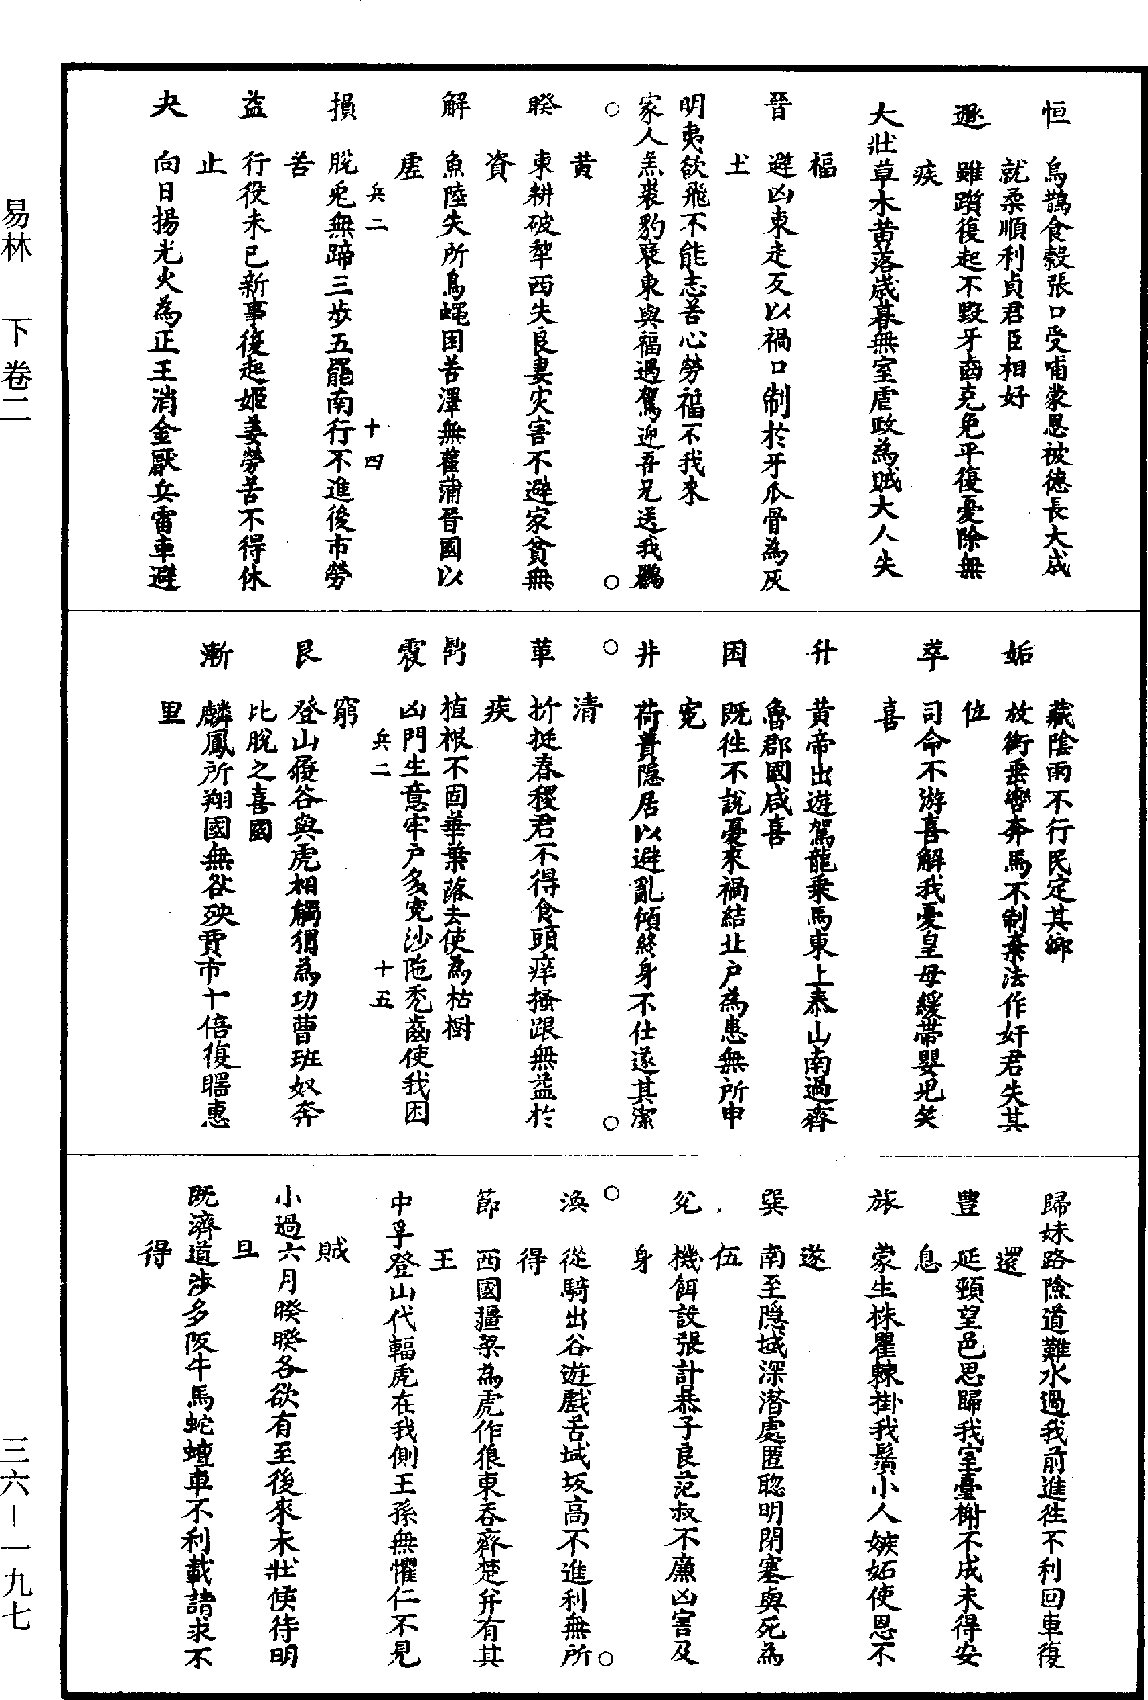 恒　烏鵲食穀張口受哺蒙恩被德長大成
就柔順利貞君臣相好
遯　雖躓復起不毀牙齒克免平復憂除無
疾
大壯草木黃落歲暮無室虐政為賊大人失
福
晉　避凶東走反以禍口制於牙爪骨為灰
土
明夷欲飛不能志苦心勞福不我來
家人羔裘豹袪東與福遇駕迎吾兄送我鸝
黃
睽　東耕破犂西失良妻灾害不避家貧無
資
解　魚陸失所鳥蠅困苦澤無雚蒲晉國以
虛
兵二　十四
損　脫兎無蹄三步五罷南行不進後市勞
苦
益　行役未已新事復起姬姜勞苦不得休
止
夬　向日揚光火為正王消金厭兵雷車避
藏陰雨不行民定其鄉
姤　放銜垂轡奔馬不制棄法作奸君失其
位
萃　司命不游喜解我憂皇母緩帶嬰兒笑
喜
升　黃帝出遊駕龍乗馬東上泰山南過齊
魯郡國咸喜
困　既徃不說憂來禍結北户為患無所申
寃
井　荷蕢隱居以避亂傾終身不仕遂其潔
清
革　折挺春稷君不得食頭痒搔跟無益於
疾
鼎　植根不固華葉落去使為枯樹
震　凶門生意牢户多寃沙陁禿齒使我困
兵二　十五
窮
艮　登山履谷與虎相觸猬為功曹班奴奔
北脫之喜國
漸　麟鳳所翔國無咎殃賈市十倍復曙惠
里
歸妹路險道難水過我前進徃不利回車復
還
豐　延頸望邑思歸我室臺榭不成未得安
息
旅　蒙生株瞿棘掛我鬚小人嫉妬使恩不
遂
巽　南至隠域深潜處匿聦明閉塞與死為
伍
兌　機餌設張計暴子良范叔不廉凶害及
身
渙　從騎出谷遊戲苦域坂高不進利無所
得
節　西國疆梁為虎作狼東吞齊楚并有其
王
中孚登山代輻虎在我側王孫無懼仁不見
賊
小過六月睽睽各欲有至後來未壯俟待明
旦
既濟道涉多阪牛馬蛇蟺車不利載請求不
得
易林　下卷二
三六－一九七